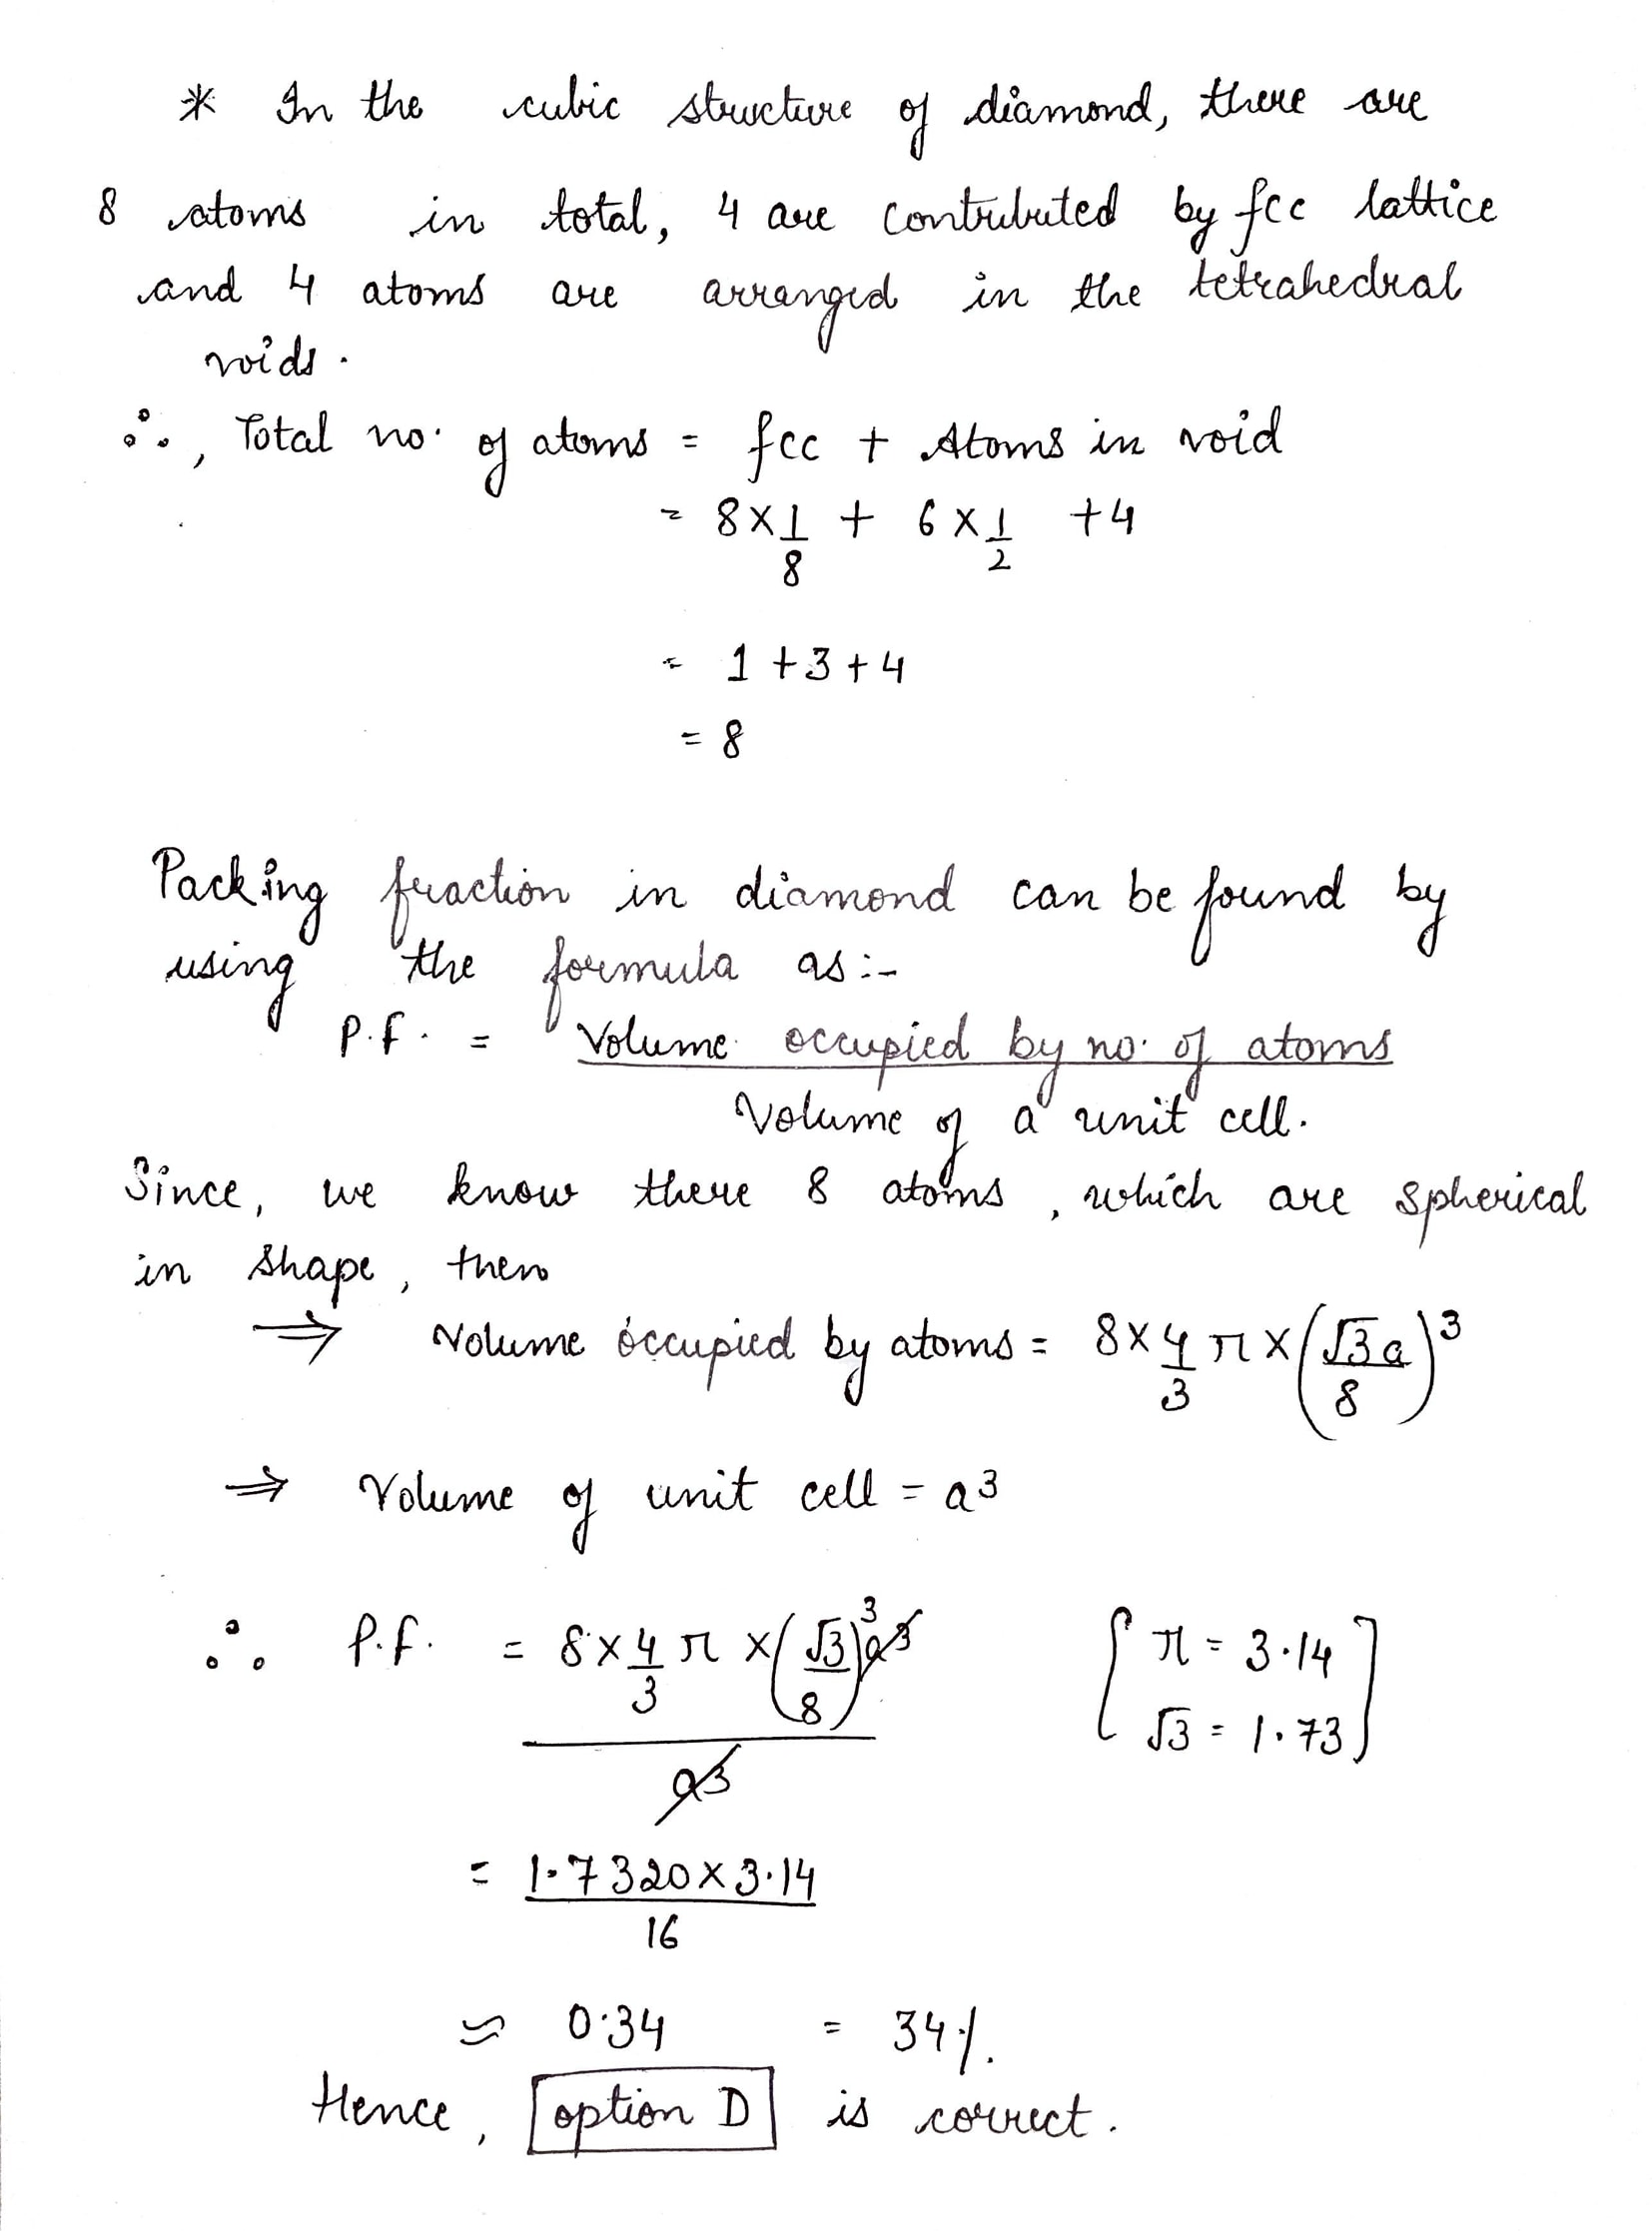 * In the cubic structure of diamond, there are
8 atoms in total, 4 are contributed by fcc lattice
and 4 atoms are arranged in the tetrahedral
voids.
∴, Total no. of atoms = fcc + Atoms in void
= 8×1/8 + 6×1/2 +4
= 1+3+4
= 8
Packing fraction in diamond can be found by
using the formula as:-
P.f. = Volume occupied by no. of atoms
Volume of a unit cell.
Since, we know there 8 atoms, which are spherical
in shape, then
⇒ Volume occupied by atoms = 8×4/3 π×(√3a/8)³
⇒ Volume of unit cell = a³
∴ P.f. = 8×4/3 π×(√3/8)³a³ / a³ [π = 3.14
√3 = 1.73]
= 1.7320×3.14
16
≈ 0.34 = 34%.
Hence, option D is correct.